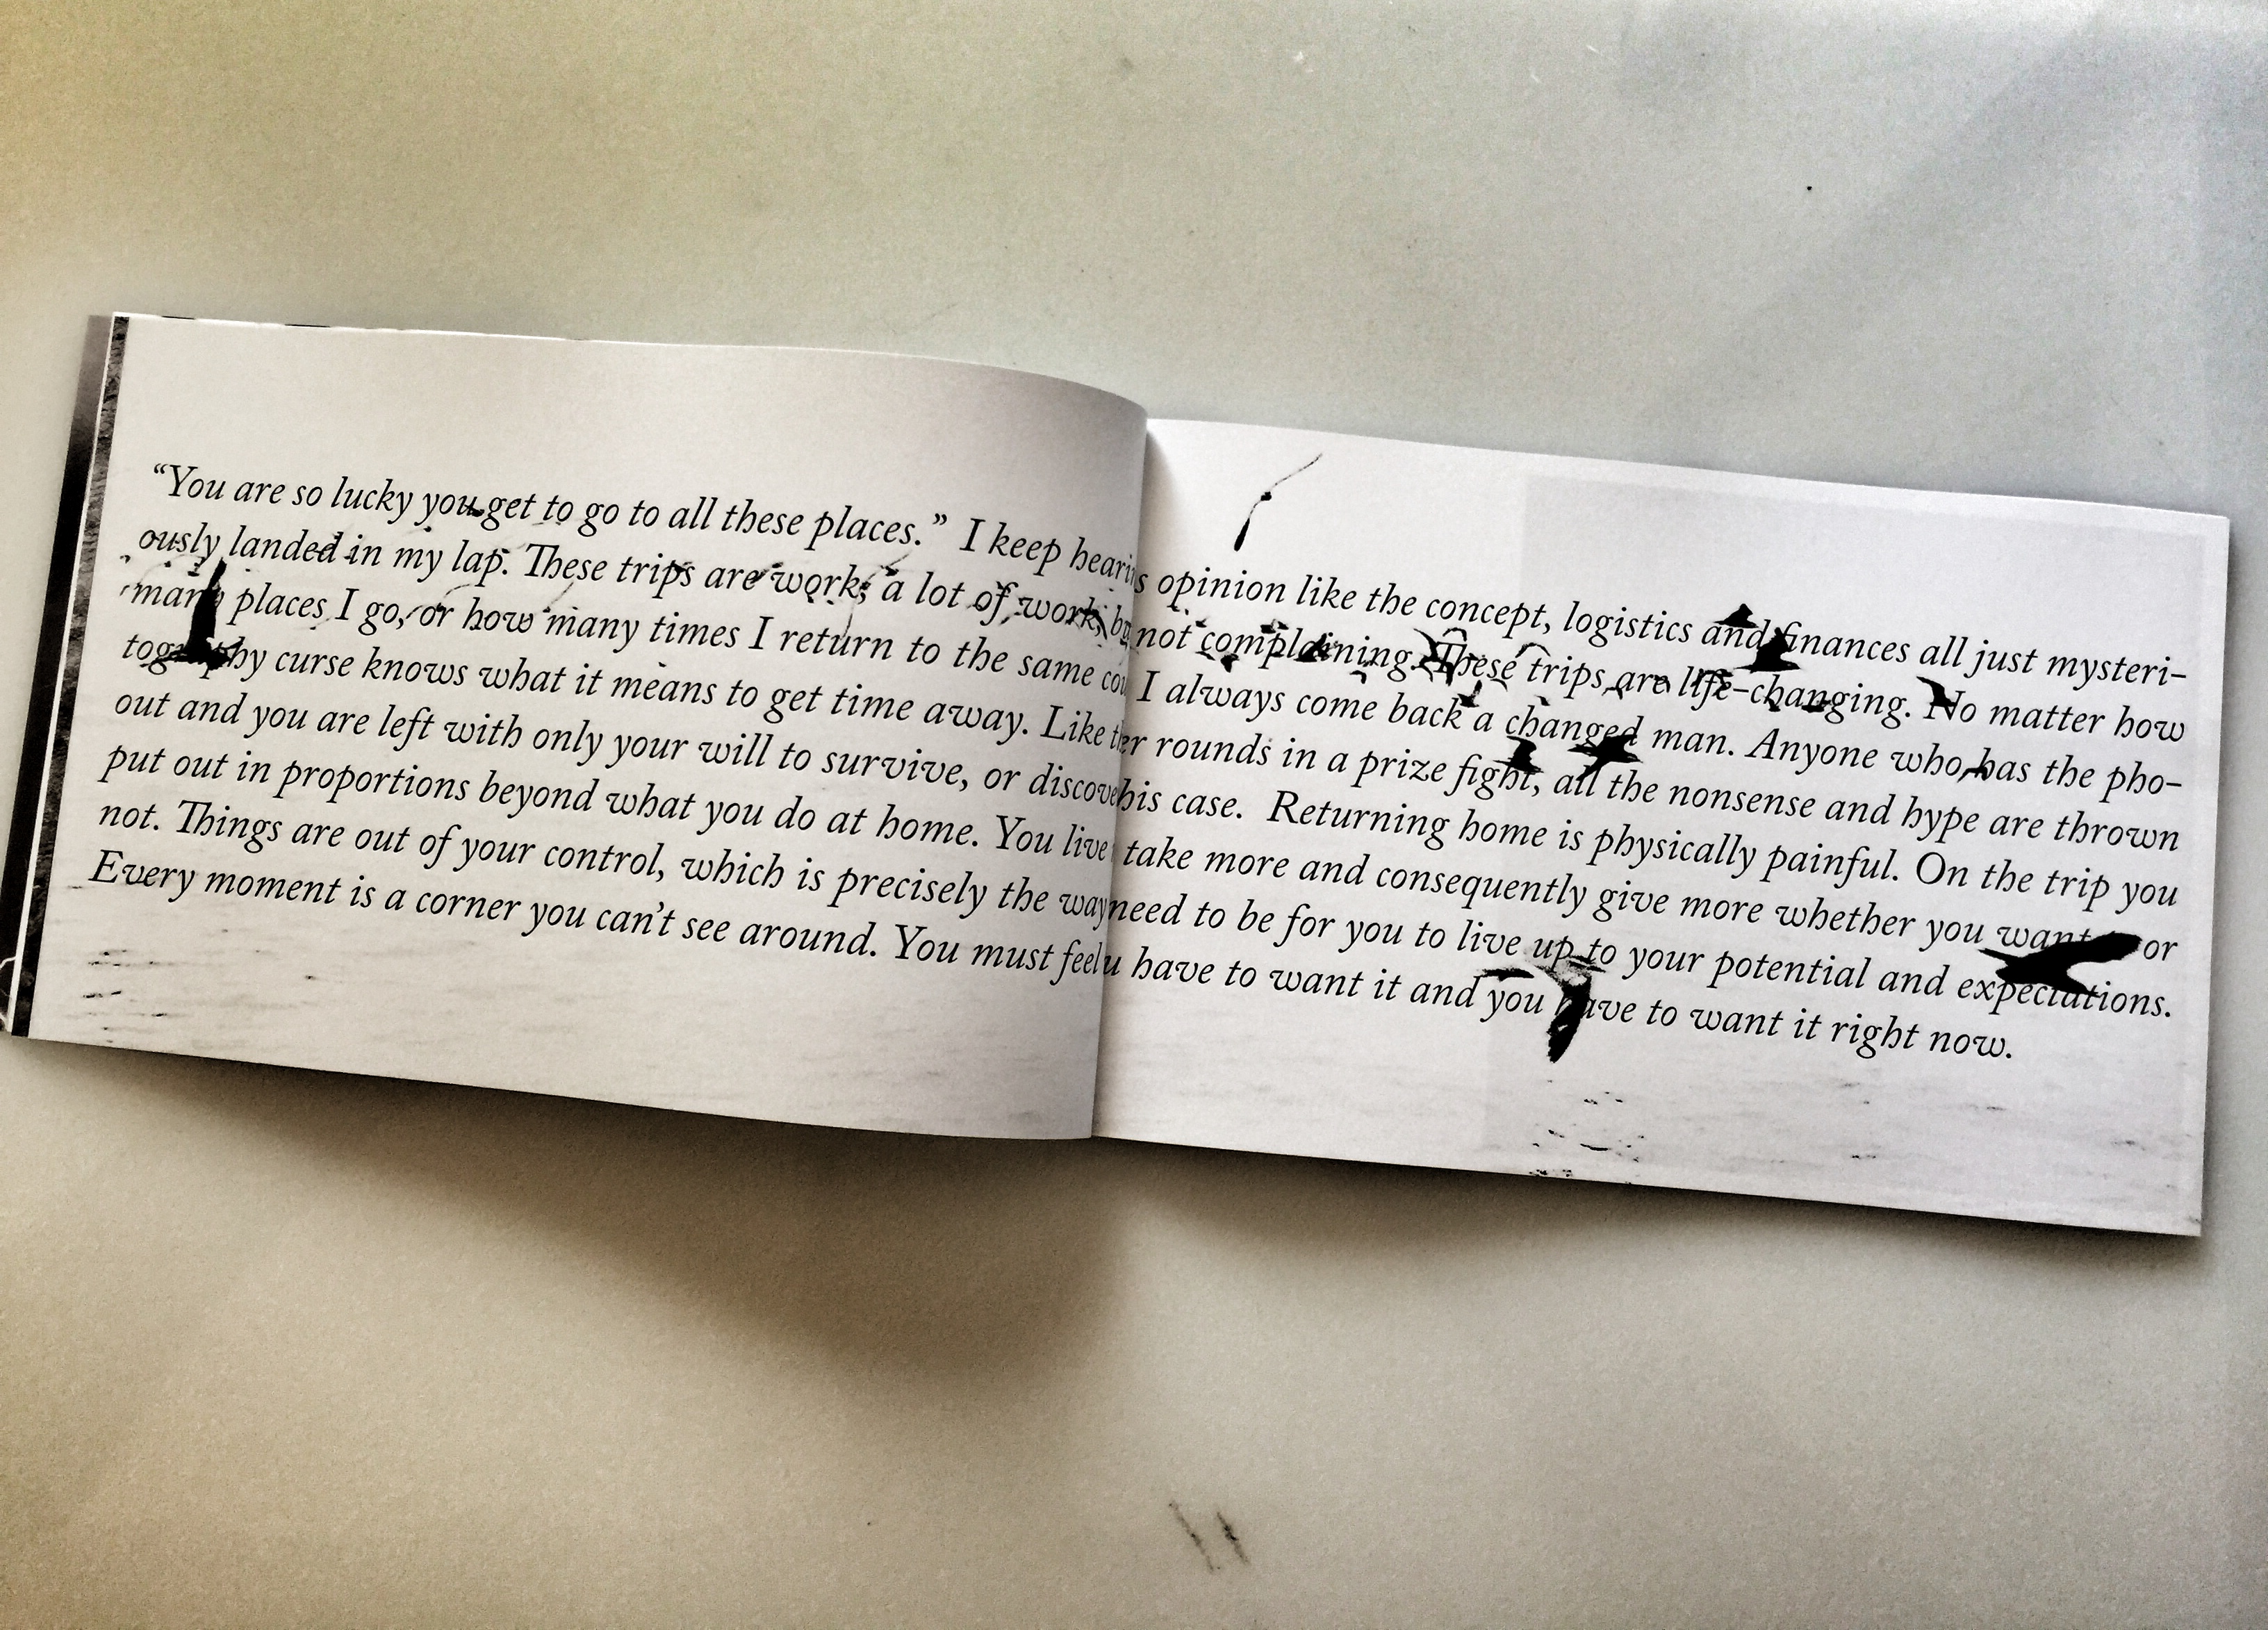 “You are so lucky you get to go to all these places.” I keep opinion like the concept, logistics and finances all just mysteri-
ously landed in my lap. These trips are work, a lot of work, not complaining. These trips are life-changing. No matter how
many places I go, or how many times I return to the same I always come back a changed man. Anyone who has the pho-
tography curse knows what it means to get time away. Like rounds in a prize fight, all the nonsense and hype are thrown
out and you are left with only your will to survive, or case. Returning home is physically painful. On the trip you
put out in proportions beyond what you do at home. You live take more and consequently give more whether you want or
not. Things are out of your control, which is precisely the way need to be for you to live up to your potential and expectations.
Every moment is a corner you can’t see around. You must feel have to want it and you have to want it right now.